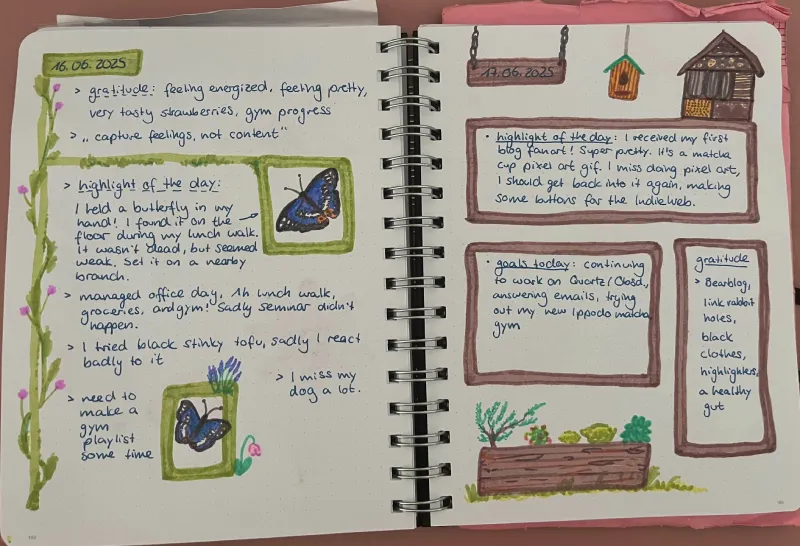 16.06.2025
> gratitude: feeling energized, feeling pretty,
very tasty strawberries, gym progress
> „capture feelings, not content"
> highlight of the day:
I held a butterfly in my
hand! I found it on the
floor during my lunch walk.
It wasn't dead, but seemed
weak. Set it on a nearby
branch.
> managed office day, 1h lunch walk,
groceries, and gym! Sadly seminar didn't
happen.
> I tried black stinky tofu, sadly I react
badly to it
> need to
make a
gym
playlist
some time
> I miss my
dog a lot.
17.06.2025
• highlight of the day: I received my first
blog fanart! Super pretty. It's a matcha
cup pixel art gif. I miss doing pixel art,
I should get back into it again, making
some buttons for the Indieweb.
• goals today: continuing
to work on Quartz/Obsd.,
answering emails, trying
out my new Ippodo matcha,
gym
gratitude
> Bearblog,
link rabbit
holes,
black
clothes,
highlighters,
a healthy
gut